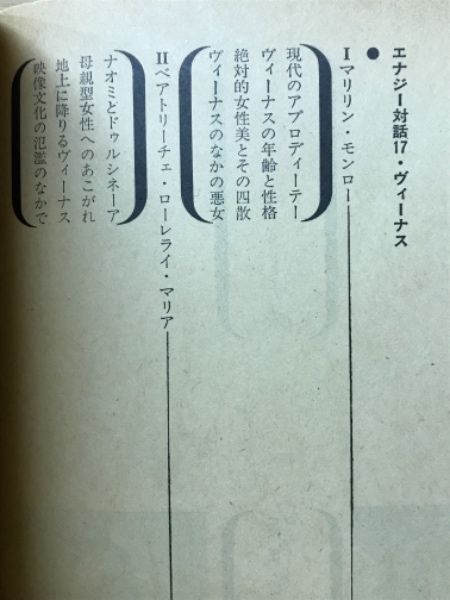 エナジー対話17・ヴィーナス
●
Ⅰマリリン・モンロー
現代のアプロディーテー
ヴィーナスの年齢と性格
絶対的女性美とその四散
ヴィーナスのなかの悪女
Ⅱベアトリーチェ・ローレライ・マリア
ナオミとドゥルシネーア
母親型女性へのあこがれ
地上に降りるヴィーナス
映像文化の氾濫のなかで